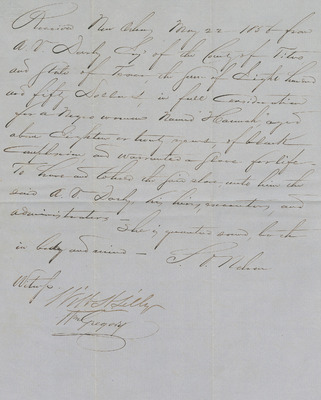 Received New Orleans May 22 1856 from
A. D. Darby Esq of the County of Titus
and State of Texas, the sum of Eight hundred
and fifty Dollars, in full Consideration
for a Negro woman Named Hannah aged
about Eighteen or twenty years, of black
Complexion, and warranted a Slave for life.
To have and to hold the said slave unto him the
said A. D. Darby, his heirs, executors, and
administrators — She is guaranteed sound, both
in body and mind — Nelson
Witness
Lilly
Wm Gregory